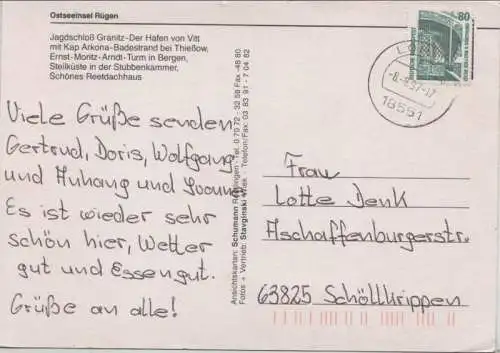 Ostseeinsel Rügen
Jagdschloß Granitz-Der Hafen von Vitt
mit Kap Arkona-Badestrand bei Thießow,
Ernst-Moritz-Arndt-Turm in Bergen,
Steilküste in der Stubbenkammer,
Schönes Reetdachhaus
Viele Grüße senden
Gertrud, Doris, Wolfgang
und Anhang und
Es ist wieder sehr
schön hier, Wetter
gut und Essen gut.
Grüße an alle!
Ansichtskarten: Schumann
Fotos + Vertrieb: Stavginski
Telefon/Fax: 03 83 91 - 7 04 82
80
18551
Frau
Lotte Denk
Aschaffenburgerstr.
63825 Schöllkrippen